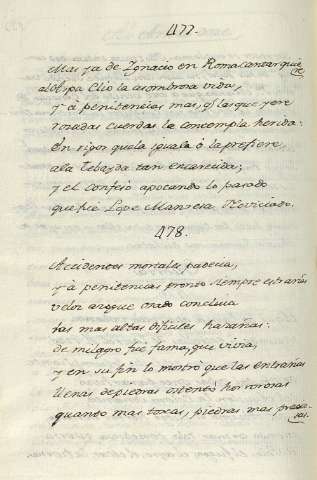 477.
Mas ya de Ygnacio en Roma cantar quiere
al Arpa Clio la asombrosa vida,
y à penitencias mas, q̃ las que yere
Toradas cuerdas la contempla herida:
En rigor qual a iguala ò la prefiere,
ala Tebayda tan encarecida;
y el Confesò apocando lo pasado
que fuè Lope Manresa Noviciado.
478.
Accidentes mortales padecia,
y à penitencias pronto siempre estrañas
veloz aunque orado concluia
las mas altas dificiles hazañas:
de milagro fuè fama, que vivia,
y en su fin lo mostrò que las entrañas
llenas de piedras ostentò horrorosas
quando mas toscas, piedras mas preciosas.